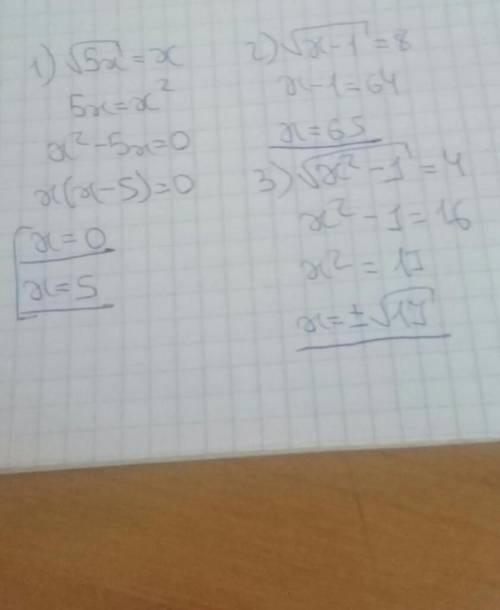 1) √5x = x
5x = x²
x² - 5x = 0
x(x - 5) = 0
[x = 0
x = 5
2) √x - 1 = 8
x - 1 = 64
x = 65
3) √x² - 1 = 4
x² - 1 = 16
x² = 17
x = ±√17